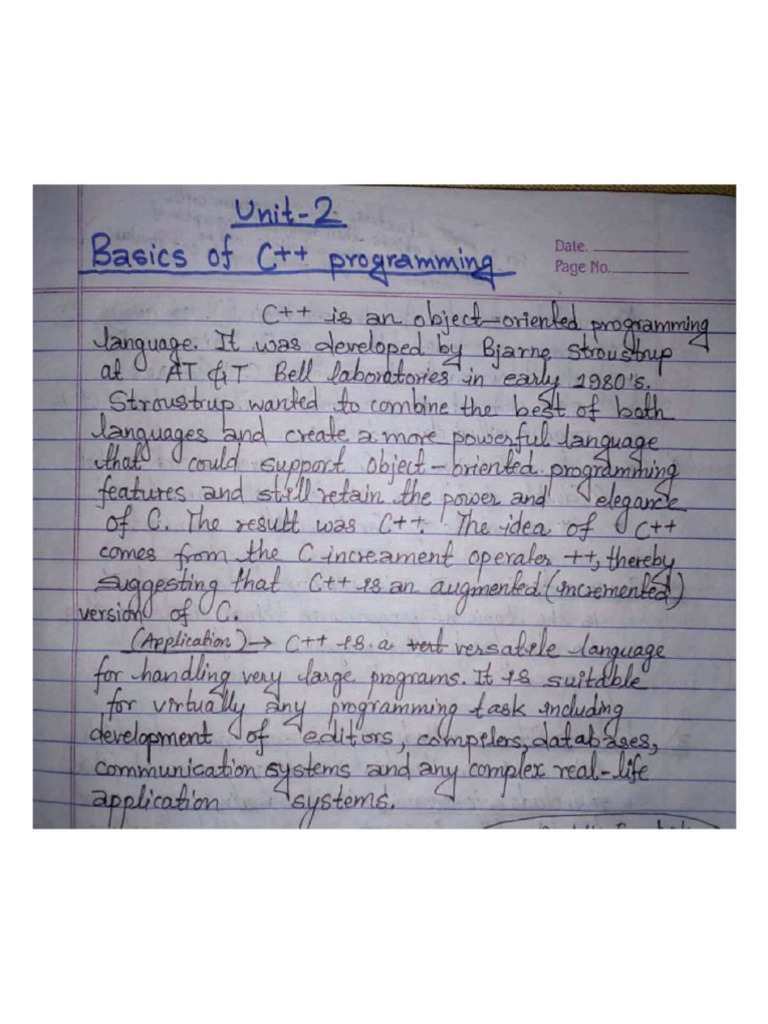 Unit-2
Basics of C++ programming
Date.
Page No.
C++ is an object-oriented programming
language. It was developed by Bjarne Stroustrup
at AT &T Bell laboratories in early 1980's.
Stroustrup wanted to combine the best of both
languages and create a more powerful language
that could support object-oriented programming
features and still retain the power and elegance
of C. The result was C++. The idea of C++
comes from the C increament operater ++, thereby
suggesting that C++ is an augmented (incremented)
version of C.
(Application) → C++ is a vert versatile language
for handling very large programs. It is suitable
for virtually any programming task including
development of editors, compilers, databases,
communication systems and any complex real-life
application systems.